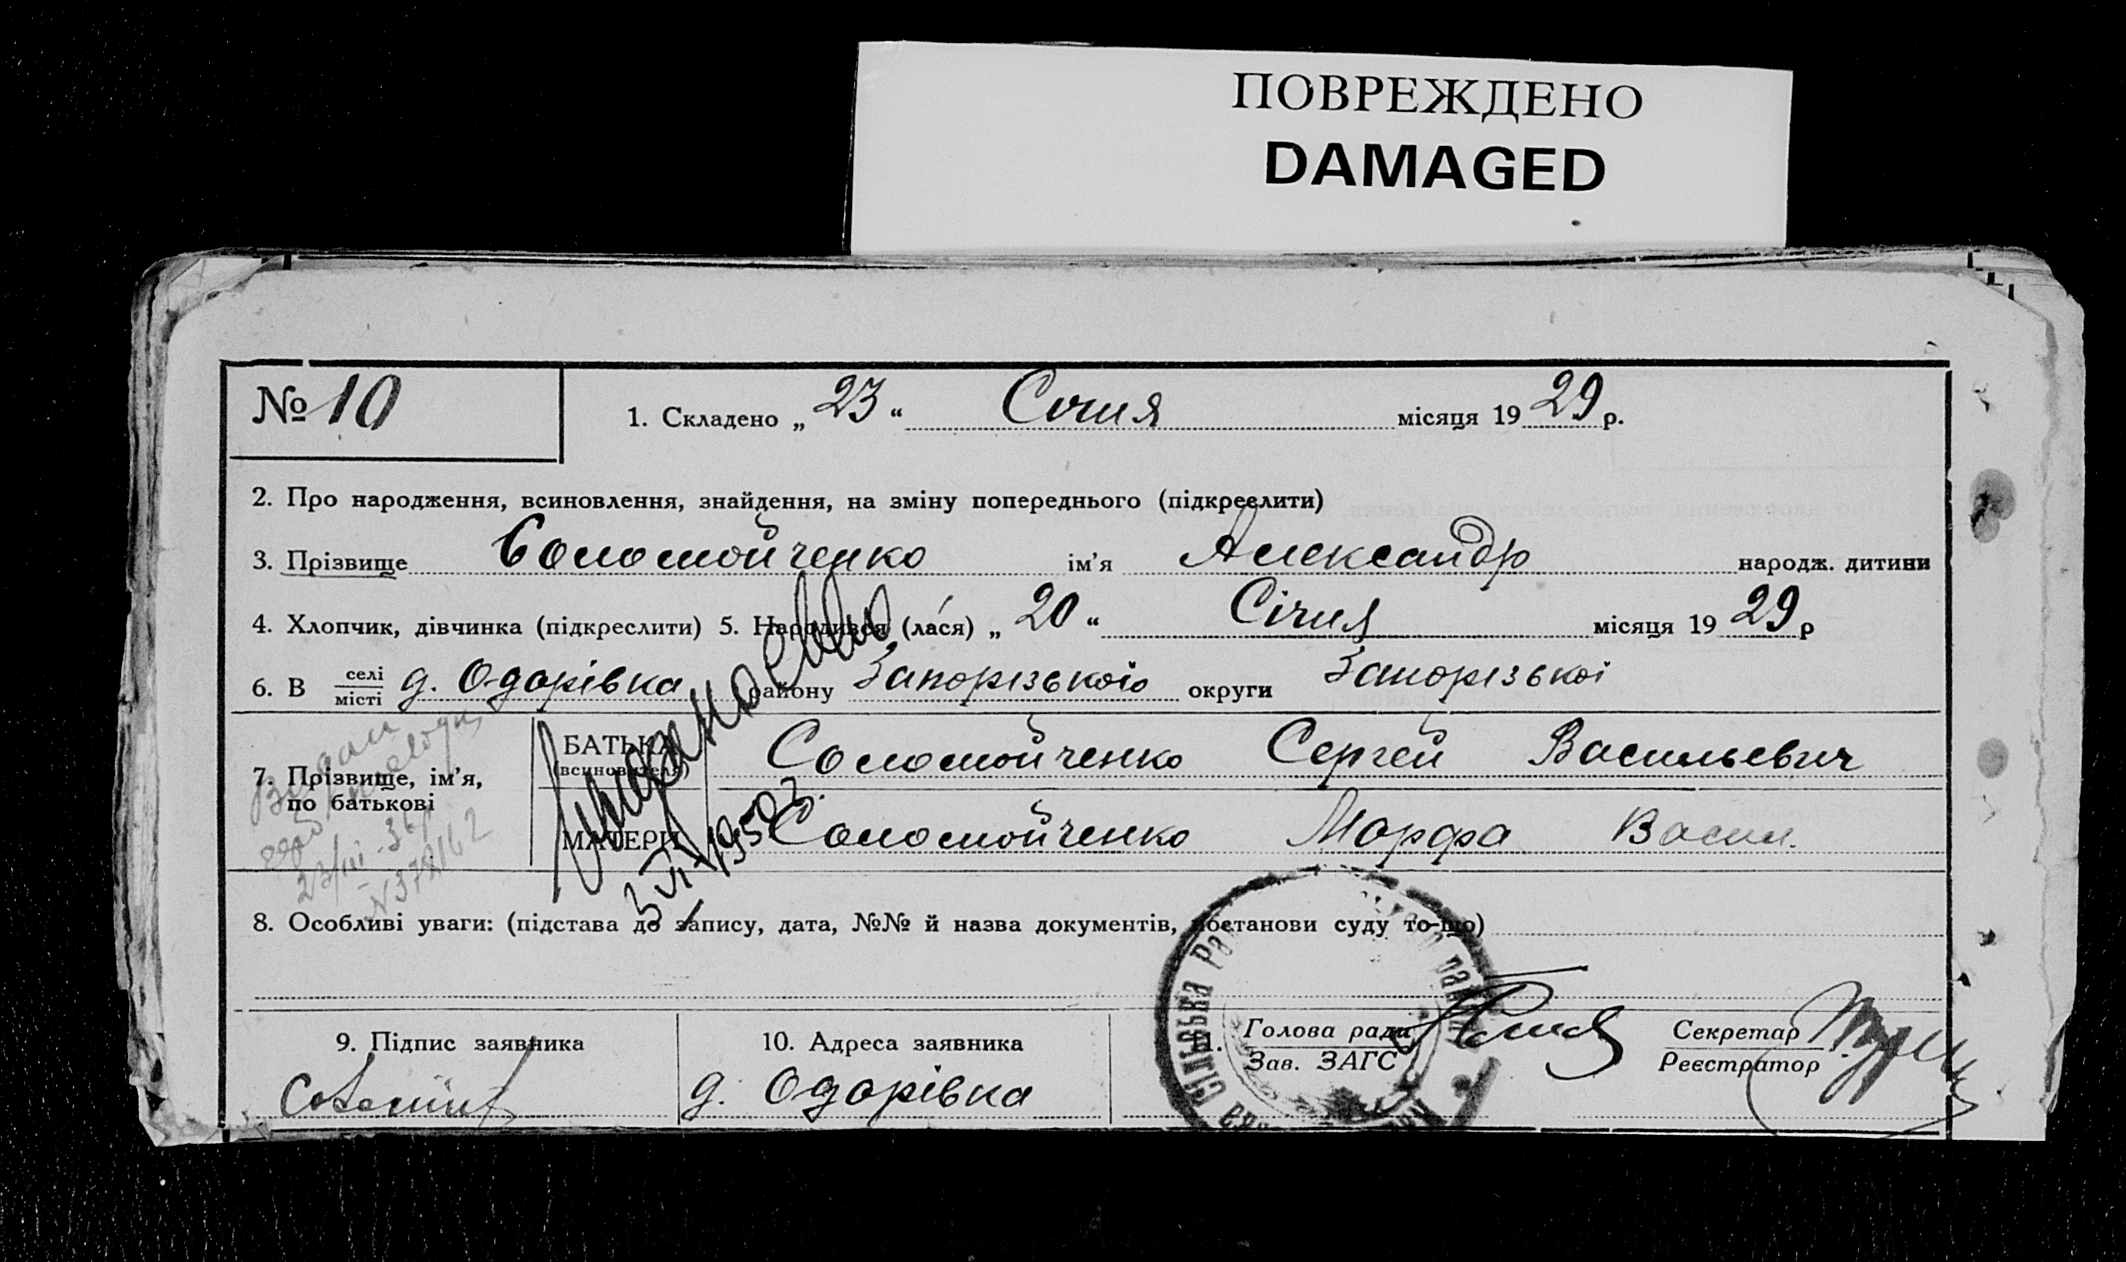 ПОВРЕЖДЕНО
DAMAGED
№ 10
1. Складено „ 23 “ Січня місяця 19 29 р.
2. Про народження, всиновлення, знайдення, на зміну попереднього (підкреслити)
3. Прізвище Соломойченко ім’я Александр народж. дитини
4. Хлопчик, дівчинка (підкреслити) 5. Народився (лася) „ 20 “ Січня місяця 19 29 р
6. В селі місті д. Одарівка району Запорізького округи Запорізької
7. Прізвище, ім’я, по батькові
БАТЬКА (всиновителя) Соломойченко Сергей Васильевич
МАТЕРИ Соломойченко Марфа Васил.
3/VI-1950 г.
8. Особливі уваги: (підстава до запису, дата, №№ й назва документів, постанови суду то-що)
9. Підпис заявника
10. Адреса заявника
д. Одарівка
11. Голова ради
Зав. ЗАГС
Секретар
Реєстратор
Сільська Ра